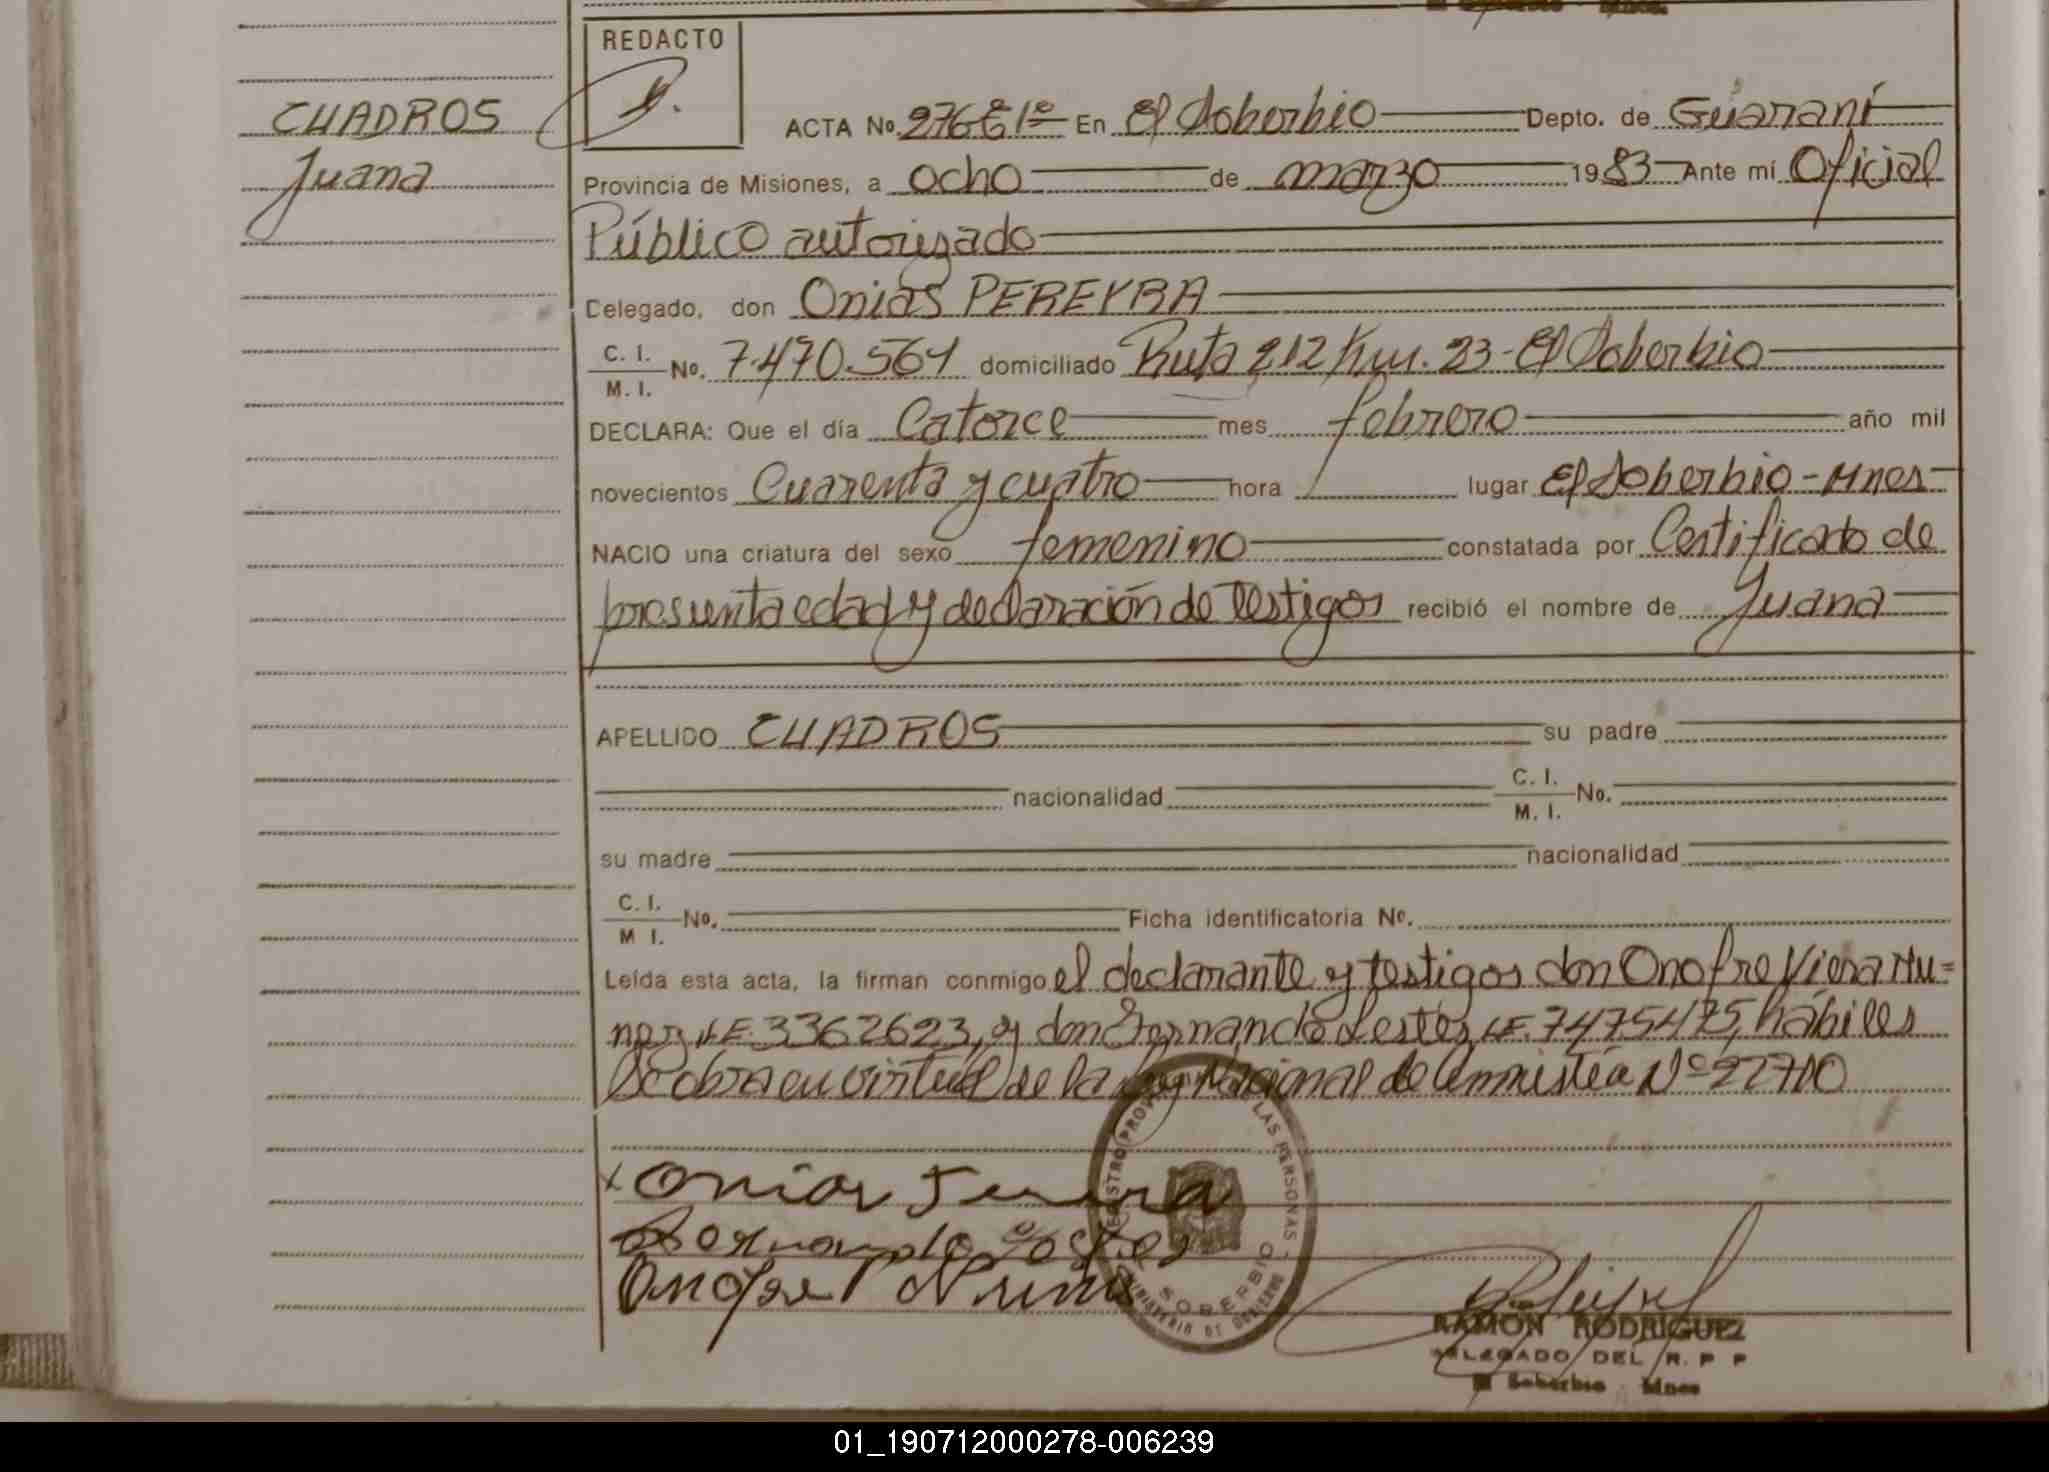 REDACTO
CUADROS
Juana
ACTA No. 276 En El Soberbio Depto. de Guaraní
Provincia de Misiones, a ocho de marzo 1983 Ante mí Oficial
Público autorizado
Delegado, don Onias PEREYRA
C. I.
M. I. No. 7.470.561 domiciliado Ruta 212 Km. 23 - El Soberbio
DECLARA: Que el día Catorce mes febrero año mil
novecientos Cuarenta y cuatro hora lugar El Soberbio - Mnes
NACIO una criatura del sexo femenino constatada por Certificado de
presunta edad y declaración de testigos recibió el nombre de Juana
APELLIDO CUADROS su padre
nacionalidad C. I.
M. I. No.
su madre nacionalidad
C. I.
M I. No. Ficha identificatoria No.
Leída esta acta, la firman conmigo el declarante y testigos don Onofre Viera Nu=
nez LE. 3362623, y don Fernando Lestes LE. 7475475, hábiles
Se obra en virtud de la Ley Nacional de Amnistía Nº 22710
REGISTRO PROV LAS PERSONAS
SOBERBIO
MINISTERIO DE GOBIERNO
RAMON RODRIGUEZ
DELEGADO DEL R. P P
El Soberbio Mnes
01_190712000278-006239